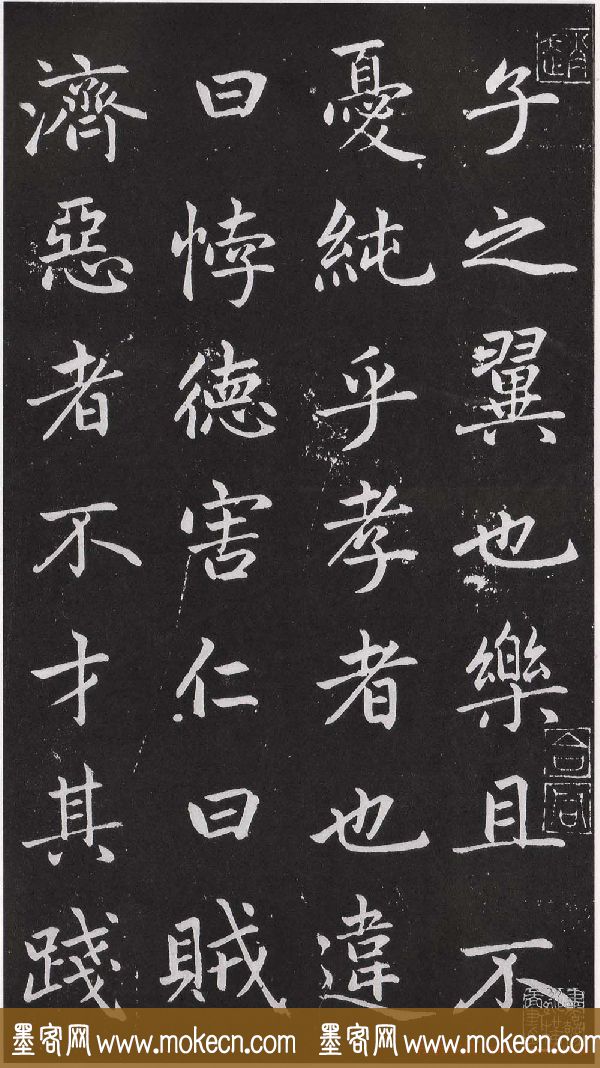 子之翼也樂且不
憂純乎孝者也違
曰悖德害仁曰賊
濟惡者不才其踐
墨客网 www.mokecn.com 墨客网 www.mokecn.com